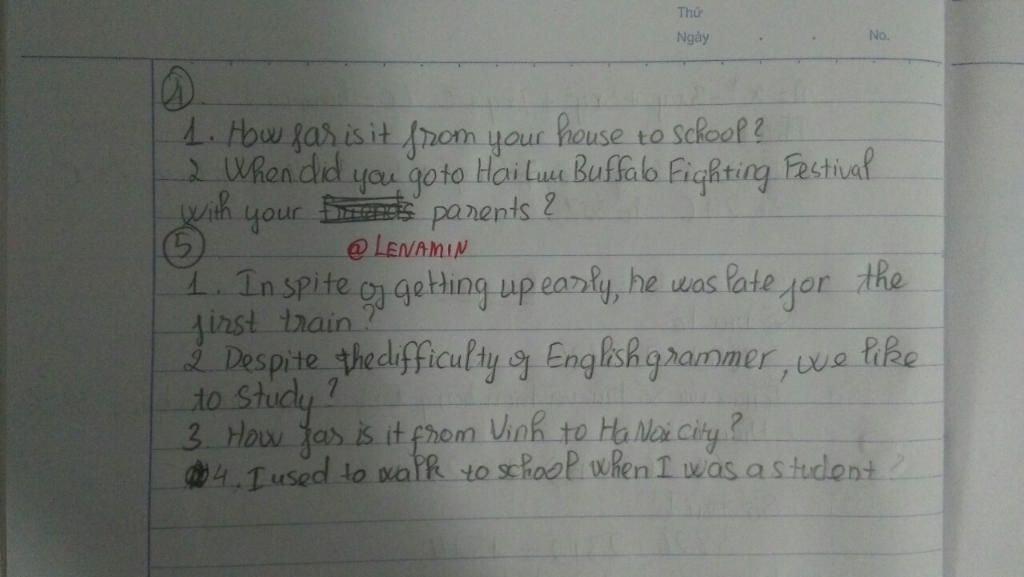 Thứ
Ngày . . No.
4
1. How far is it from your house to school?
2 When did you go to Hai Luu Buffalo Fighting Festival
with your friends parents?
5
@LENAMIN
1. In spite of getting up early, he was late for the
first train?
2 Despite the difficulty of English grammer, we like
to study?
3 How far is it from Vinh to Ha Noi city?
4. I used to walk to school when I was a student?